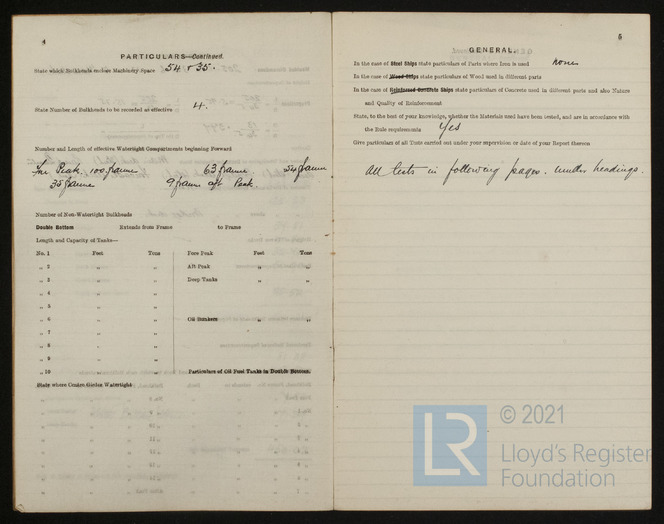 4
PARTICULARS—Continued.
State which Bulkheads enclose Machinery Space 54 & 35.
State Number of Bulkheads to be recorded as effective 4.
Number and Length of effective Watertight Compartments beginning Forward
Fore Peak, 100 frame 63 frame 54 frame
35 frame 9 frame aft Peak.
Number of Non-Watertight Bulkheads
Double Bottom Extends from Frame to Frame
Length and Capacity of Tanks—
No. 1 Feet Tons Fore Peak Feet Tons
„ 2 „ „ Aft Peak „ „
„ 3 „ „ Deep Tanks „ „
„ 4 „ „
„ 5 „ „
„ 6 „ „ Oil Bunkers „ „
„ 7 „ „
„ 8 „ „
„ 9 „ „
„ 10 „ „ Particulars of Oil Fuel Tanks in Double Bottom.
State where Centre Girder Watertight
5
GENERAL.
In the case of Steel Ships state particulars of Parts where Iron is used none
In the case of Wood Ships state particulars of Wood used in different parts
In the case of Reinforced Concrete Ships state particulars of Concrete used in different parts and also Nature
and Quality of Reinforcement
State, to the best of your knowledge, whether the Materials used have been tested, and are in accordance with
the Rule requirements Yes
Give particulars of all Tests carried out under your supervision or date of your Report thereon
All tests in following pages. under headings.
LR
© 2021
Lloyd's Register
Foundation